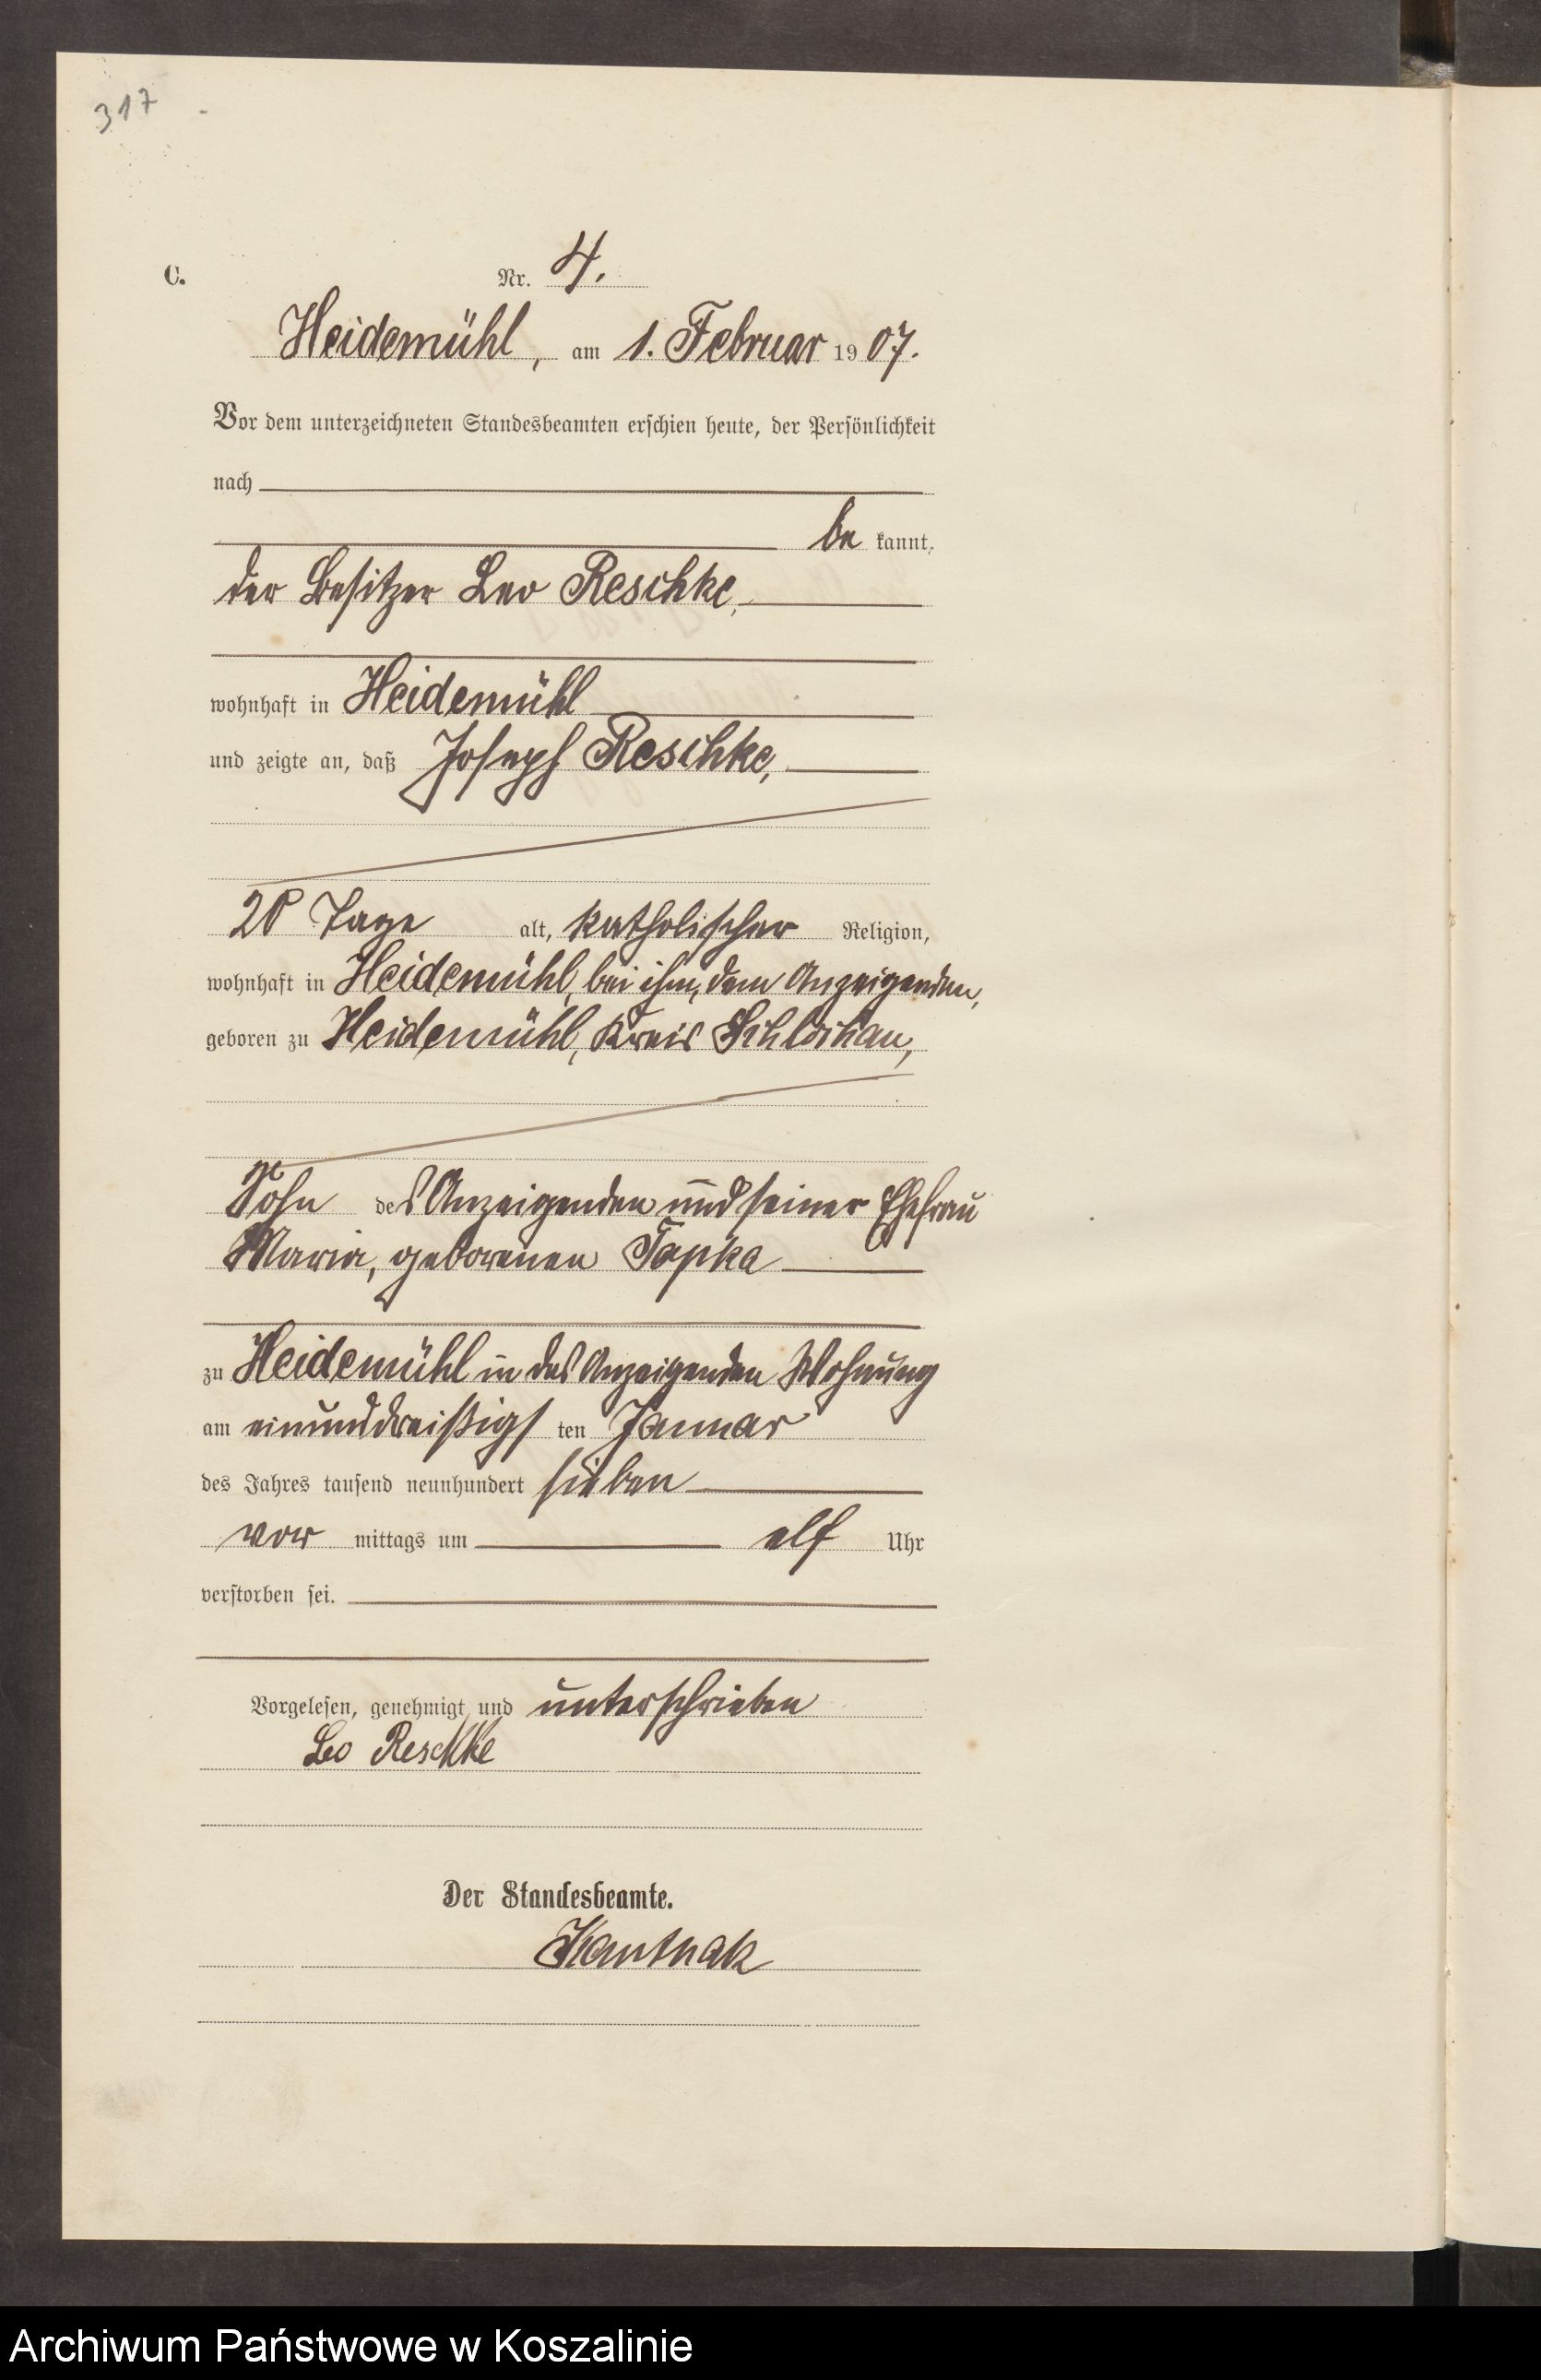 317
C.
Nr. 4.
Heidemühl, am 1. Februar 1907.
Vor dem unterzeichneten Standesbeamten erschien heute, der Persönlichkeit
nach
be kannt,
der Besitzer Leo Reschke,
wohnhaft in Heidemühl
und zeigte an, daß Joseph Reschke,
Tage alt, katholischer Religion,
wohnhaft in Heidemühl, bei ihm, dem Anzeigenden,
geboren zu Heidemühl, Kreis Schlochau,
Sohn des Anzeigenden und seiner Ehefrau
Maria, geborenen Tapka
zu Heidemühl in des Anzeigenden Wohnung
am einunddreißigs ten Januar
des Jahres tausend neunhundert sieben
vor mittags um elf Uhr
verstorben sei.
Vorgelesen, genehmigt und unterschrieben
Leo Reschke
Der Standesbeamte.
Kantnak
Archiwum Państwowe w Koszalinie